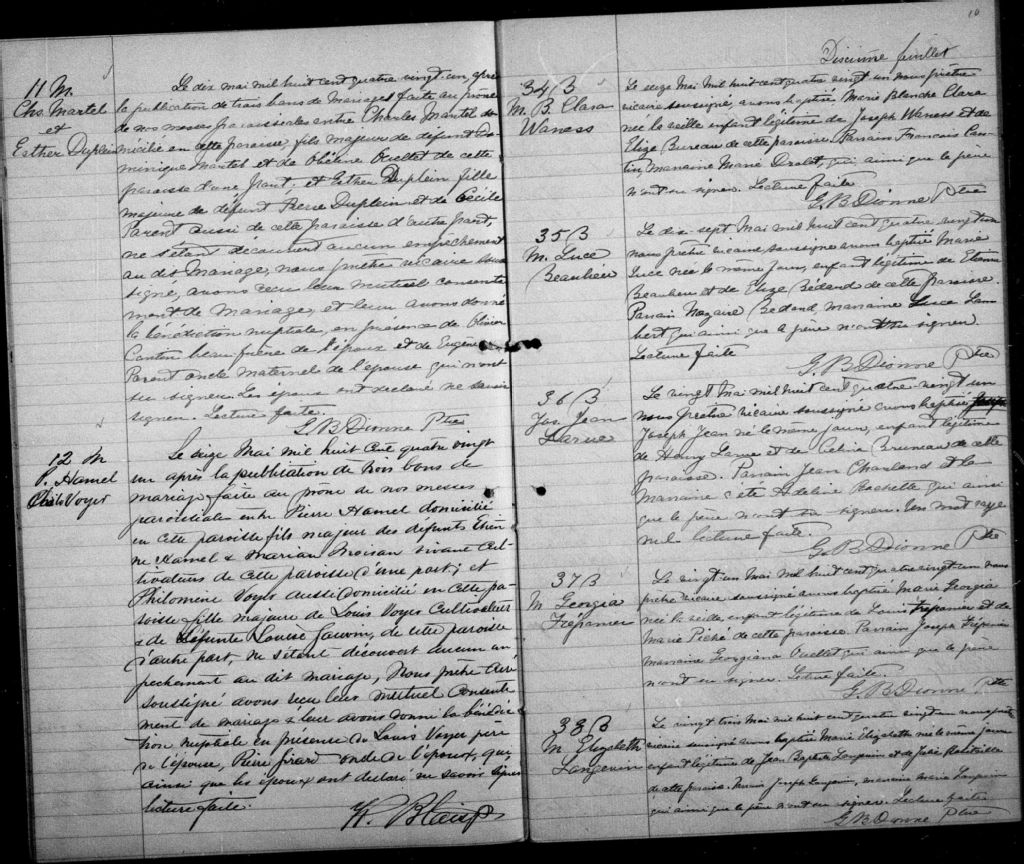 11 M.
Chs. Martel
et
Esther Duplein
Le dix mai mil huit cent quatre vingt un, après
la publication de trois bans de Mariages faite au prône
de nos messes paroissiales entre Charles Martel do-
micilié en cette paroisse, fils majeur de défunt Do-
minique Martel et de Hélène Ouellet de cette
paroisse d'une part, et Esther Duplein fille
majeure de défunt Pierre Duplein et de Cécile
Parent aussi de cette paroisse d'autre part,
ne s'étant découvert aucun empêchement
au dit Mariage, nous prêtre vicaire sous
signé, avons reçu leur mutuel consente
ment de Mariage, et leur avons donné
la bénédiction nuptiale, en présence de Olivier
Cantin beau-frère de l'époux et de Eugène
Parent oncle maternel de l'épouse qui n'ont
su signer. Les époux ont déclaré ne savoir
signer. Lecture faite.
G. B. Dionne Ptre
12 M
P. Hamel
Voyer
Le seize Mai mil huit Cent quatre vingt
un après la publication de trois bans de
mariage faite au prône de nos messes
paroissiales entre Pierre Hamel domicilié
en cette paroisse fils majeur des défunts Etien
ne Hamel & Marian Moisan vivant Cul-
tivateurs de cette paroisse d'une part; et
Philomène Voyer aussi domicilié en Cette pa-
roisse fille majeure de Louis Voyer Cultivateur
& de défunte Louise de cette paroisse
d'autre part, ne s'étant découvert aucun em
pechement au dit mariage, Nous prêtre
soussigné avons reçu leur mutuel Consente
ment de mariage & leur avons donné la bénédic
tion nuptiale en présence de Louis Voyer père
de l'épouse, Pierre Girard oncle de l'époux, qui,
ainsi que les époux ont déclaré ne savoir signer
lecture faite.
10
Dixième feuillet
34 B
M. B. Clara
Waness
Le seize Mai Mil huit cent quatre vingt un nous prêtre
vicaire soussigné, avons baptisé Marie Blanche Clara
née la veille enfant légitime de Joseph Waness et de
Elize Bureau de cette paroisse. Parrain Francois Can
tin, marraine Marie Drolet, qui ainsi que le père
n'ont su signer. Lecture faite
G. B. Dionne Ptre
35 B
M. Luce
Beaulieu
Le dix sept Mai mil huit cent quatre vingt un
nous prêtre vicaire soussigné avons baptisé Marie
Luce née le même jour, enfant légitime de Etienne
Beaulieu et de Elize Bédard de cette paroisse.
Parrain Nazaire Bédard, marraine Luce Lam
bert qui ainsi que le père n'ont su signer.
Lecture faite
G. B. Dionne Ptre
36 B
Jos. Jean
Larue
Le vingt Mai mil huit cent quatre vingt un
nous prêtre vicaire soussigné avons baptisé
Joseph Jean né le même jour, enfant légitime
de Henry Larue et de Célina Bruneau de cette
paroisse. Parrain Jean Charland et la
Marraine a été Adeline Rochette qui ainsi
que le père n'ont su signer. Un mot rayé
nul. Lecture faite.
G. B. Dionne Ptre
37 B
M. Georgia
Trépanier
Le vingt un Mai mil huit cent quatre vingt un nous
prêtre vicaire soussigné avons baptisé Marie Georgia
née la veille, enfant légitime de Louis Trépanier et de
Marie Piché de cette paroisse. Parrain Joseph Trépanier
Marraine Georgiana Ouellet qui ainsi que le père
n'ont su signer. Lecture faite.
G. B. Dionne Ptre
38 B
M. Elizabeth
Langevin
Le vingt trois Mai mil huit cent quatre vingt un nous prêtre
vicaire soussigné avons baptisé Marie Elizabeth née le même jour
enfant légitime de Jean Baptiste Langevin et de Julie
de cette paroisse. Parrain Joseph Langevin, marraine Marie Langevin
qui ainsi que le père n'ont su signer. Lecture faite.
G. B. Dionne Ptre